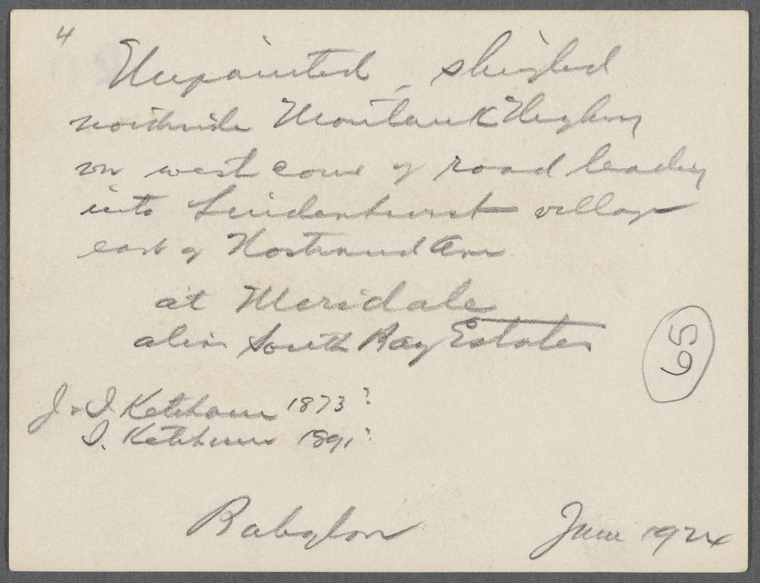 4
Unpainted, shingled
northside Montauk Highway
on west corner of road leading
into Lindenhurst village
east of Nostrand Ave
at Meridale
alias South Bay Estates
65
J. & I. Ketcham 1873?
I. Ketcham 1891?
Babylon June 1924